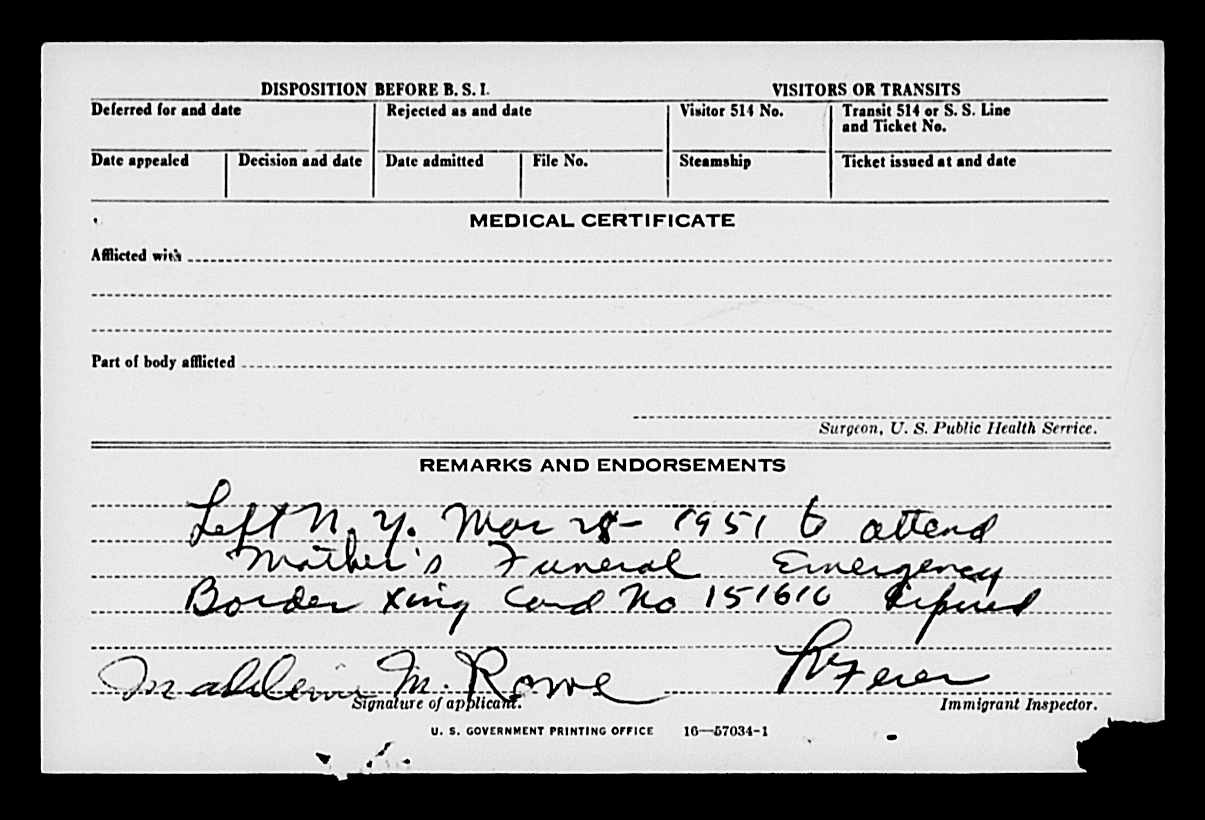 DISPOSITION BEFORE B. S. I.
VISITORS OR TRANSITS
Deferred for and date
Rejected as and date
Visitor 514 No.
Transit 514 or S. S. Line
and Ticket No.
Date appealed
Decision and date
Date admitted
File No.
Steamship
Ticket issued at and date
MEDICAL CERTIFICATE
Afflicted with
Part of body afflicted
Surgeon, U. S. Public Health Service.
REMARKS AND ENDORSEMENTS
Left N. Y. Mar 28 - 1951 to attend
Mother's Funeral Emergency
Border Xing Card No 151616
M. Rowe
Signature of applicant.
Immigrant Inspector.
U. S. GOVERNMENT PRINTING OFFICE 16—57034-1